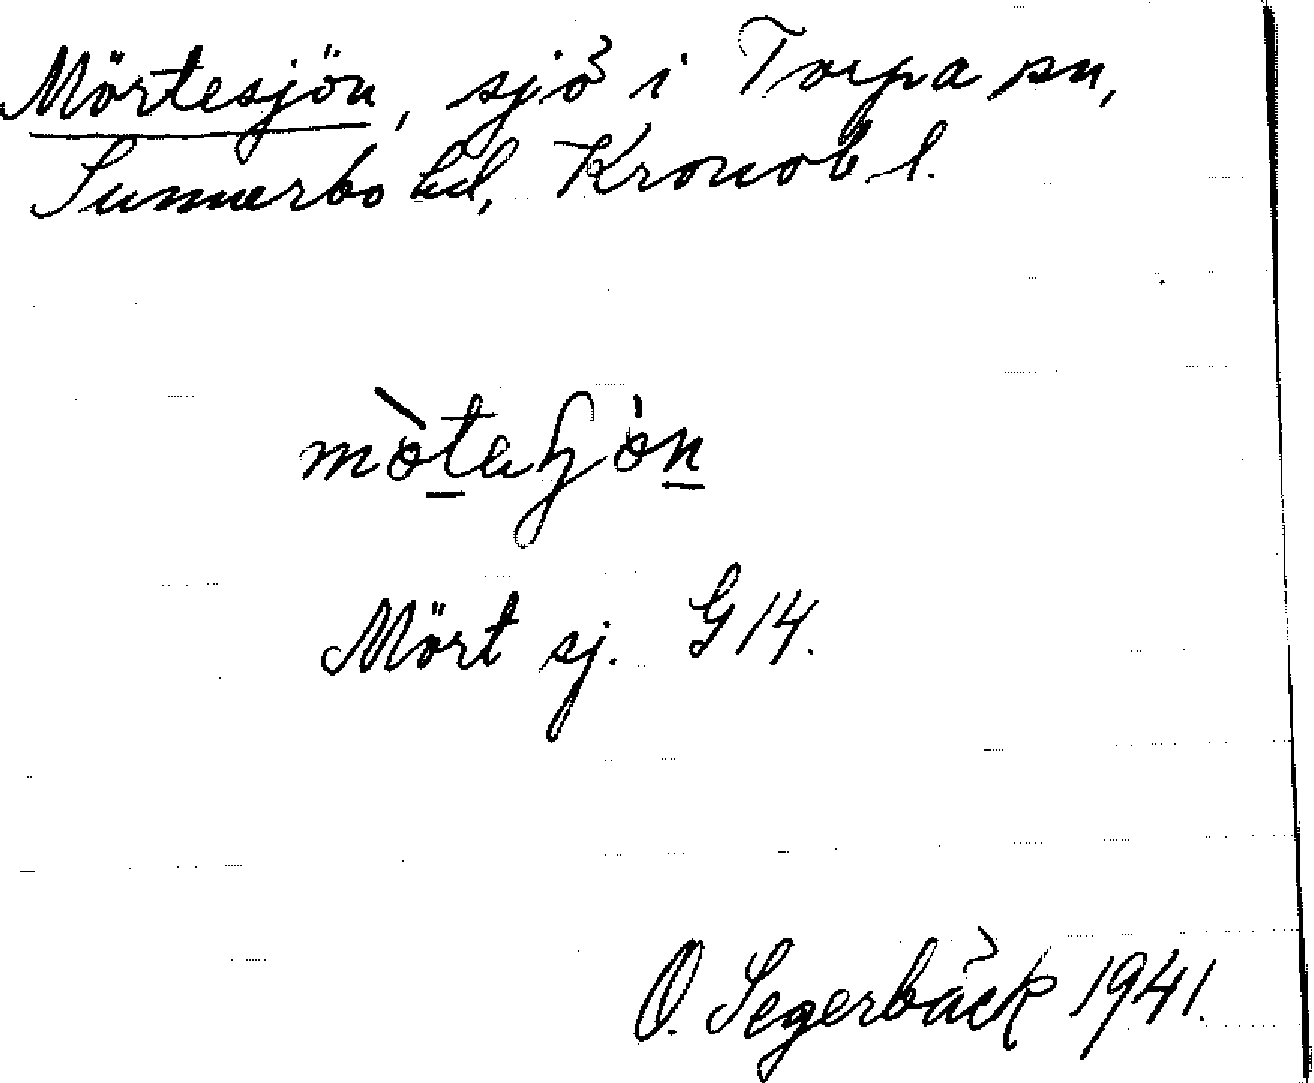 Mörtesjön, sjö i Torpa sn,
Sunnerbo hd, Kronob. l.
Mört sj. G 14.
O. Segerbäck 1941.